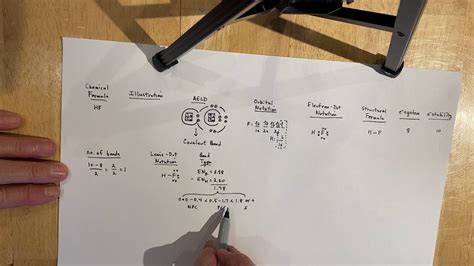 Chemical Formula
HF
Illustration
AELD
Covalent Bond
Orbital Notation
F: 1s 2s 2p
H:
1s
Electron-Dot Notation
H F
Structural Formula
H-F
e⁻ system
8
e⁻ stability
10
no. of bonds
10-8 / 2 = 2/2 = 1
Lewis-Dot Notation
H-F
Bond Type
EN_F = 3.98
- EN_H = 2.20
1.78
0.0-0.4 < 0.5-1.7 < 1.8 or +
NPC
I